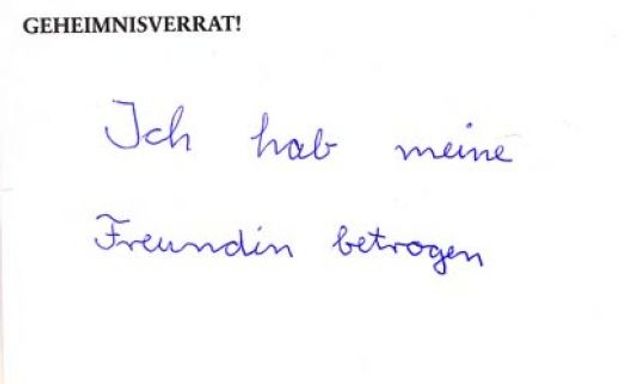 GEHEIMNISVERRAT!
Ich hab meine
Freundin betrogen